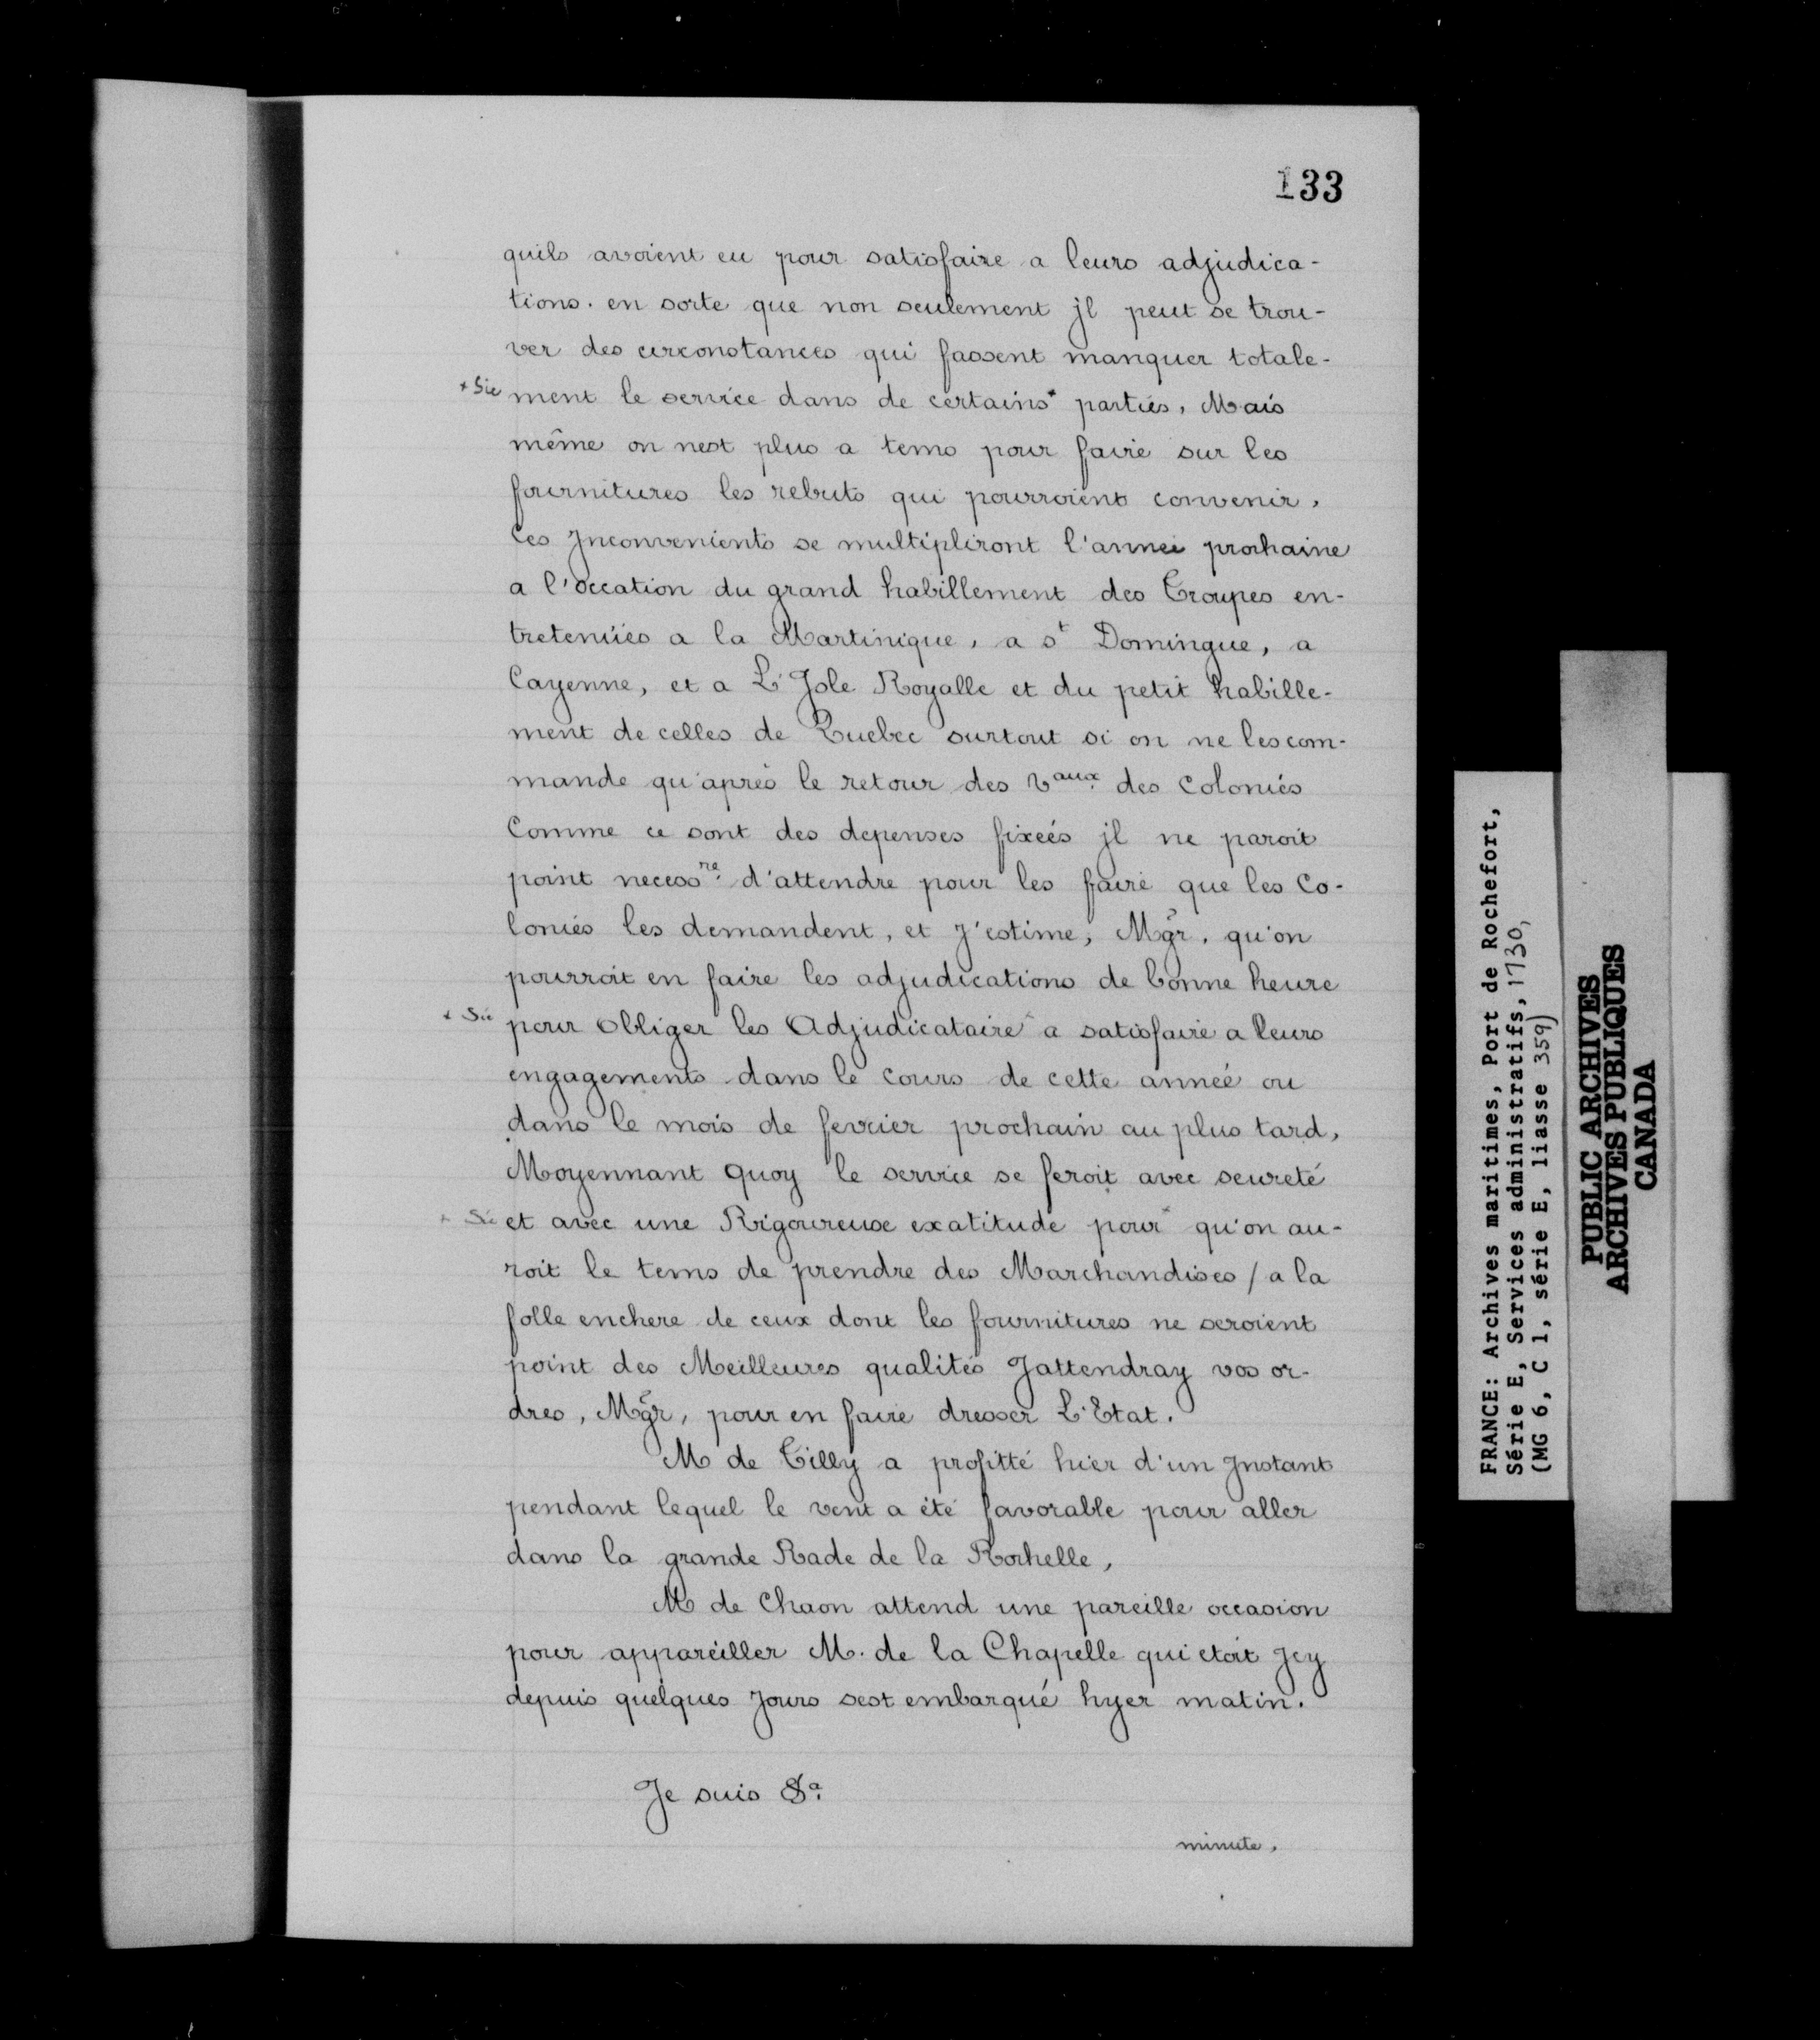 133
quils avoient eu pour satisfaire a leurs adjudica-
tions. en sorte que non seulement jl peut se trou-
ver des circonstances qui fassent manquer totale-
+ Sic ment le service dans de certains* parties, Mais
même on nest plus a tems pour faire sur les
fournitures les rebuts qui pourroient convenir,
Ces Jnconvenients se multipliront l'année prochaine
a l'occation du grand habillement des Troupes en-
tretenüés a la Martinique, a st Domingue, a
Cayenne, et a L'Jsle Royalle et du petit habille-
ment de celles de Quebec surtout si on ne les com-
mande qu'après le retour des Vaux. des Coloniés
Comme ce sont des depenses fixeés jl ne paroit
point necessre. d'attendre pour les faire que les Co-
loniés les demandent, et J'estime, Mgr, qu'on
pourroit en faire les adjudications de bonne heure
+ Sic pour Obliger les Adjudicataire* a satisfaire a leurs
engagements dans le cours de cette année ou
dans le mois de fevrier prochain au plus tard,
Moyennant Quoy le service se feroit avec seureté
+ Sic et avec une Rigoureuse exatitude pour* qu'on au-
roit le tems de prendre des Marchandises / a la
folle enchere de ceux dont les fournitures ne seroient
point des Meilleures qualités Jattendray vos or-
dres, Mgr, pour en faire dresser L'Etat.
M de Tilly a profitté hier d'un Jnstant
pendant lequel le vent a été favorable pour aller
dans la grande Rade de la Rochelle,
M de Chaon attend une pareille occasion
pour appareiller M. de la Chapelle qui etoit Jcy
depuis quelques Jours sest embarqué hyer matin.
Je suis &a.
minute.
FRANCE: Archives maritimes, Port de Rochefort,
Série E, Services administratifs, 1730,
(MG 6, C 1, série E, liasse 359)
PUBLIC ARCHIVES
ARCHIVES PUBLIQUES
CANADA